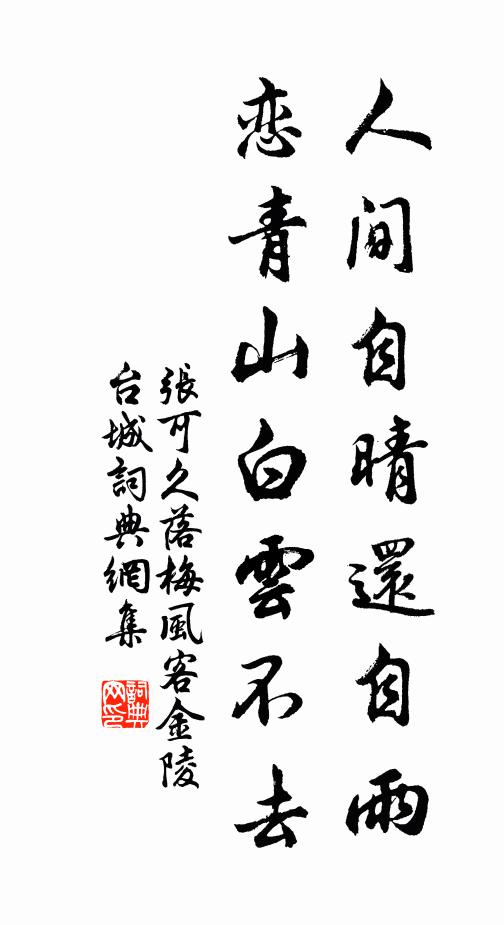 人間自晴還自雨
恋青山白雲不去
張可久落梅風客金陵
台城詞典網集
詞典
网印